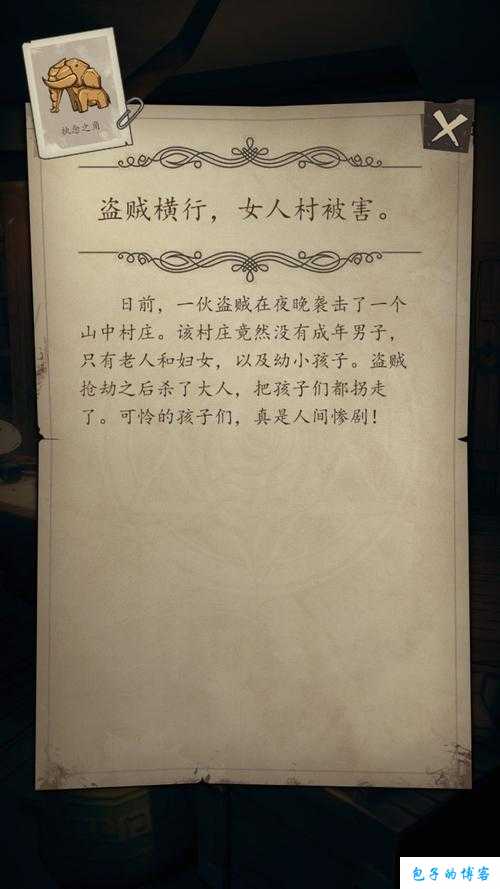 执念之角
盗贼横行，女人村被害。
日前，一伙盗贼在夜晚袭击了一个
山中村庄。该村庄竟然没有成年男子，
只有老人和妇女，以及幼小孩子。盗贼
抢劫之后杀了大人，把孩子们都拐走
了。可怜的孩子们，真是人间惨剧！
包子的博客